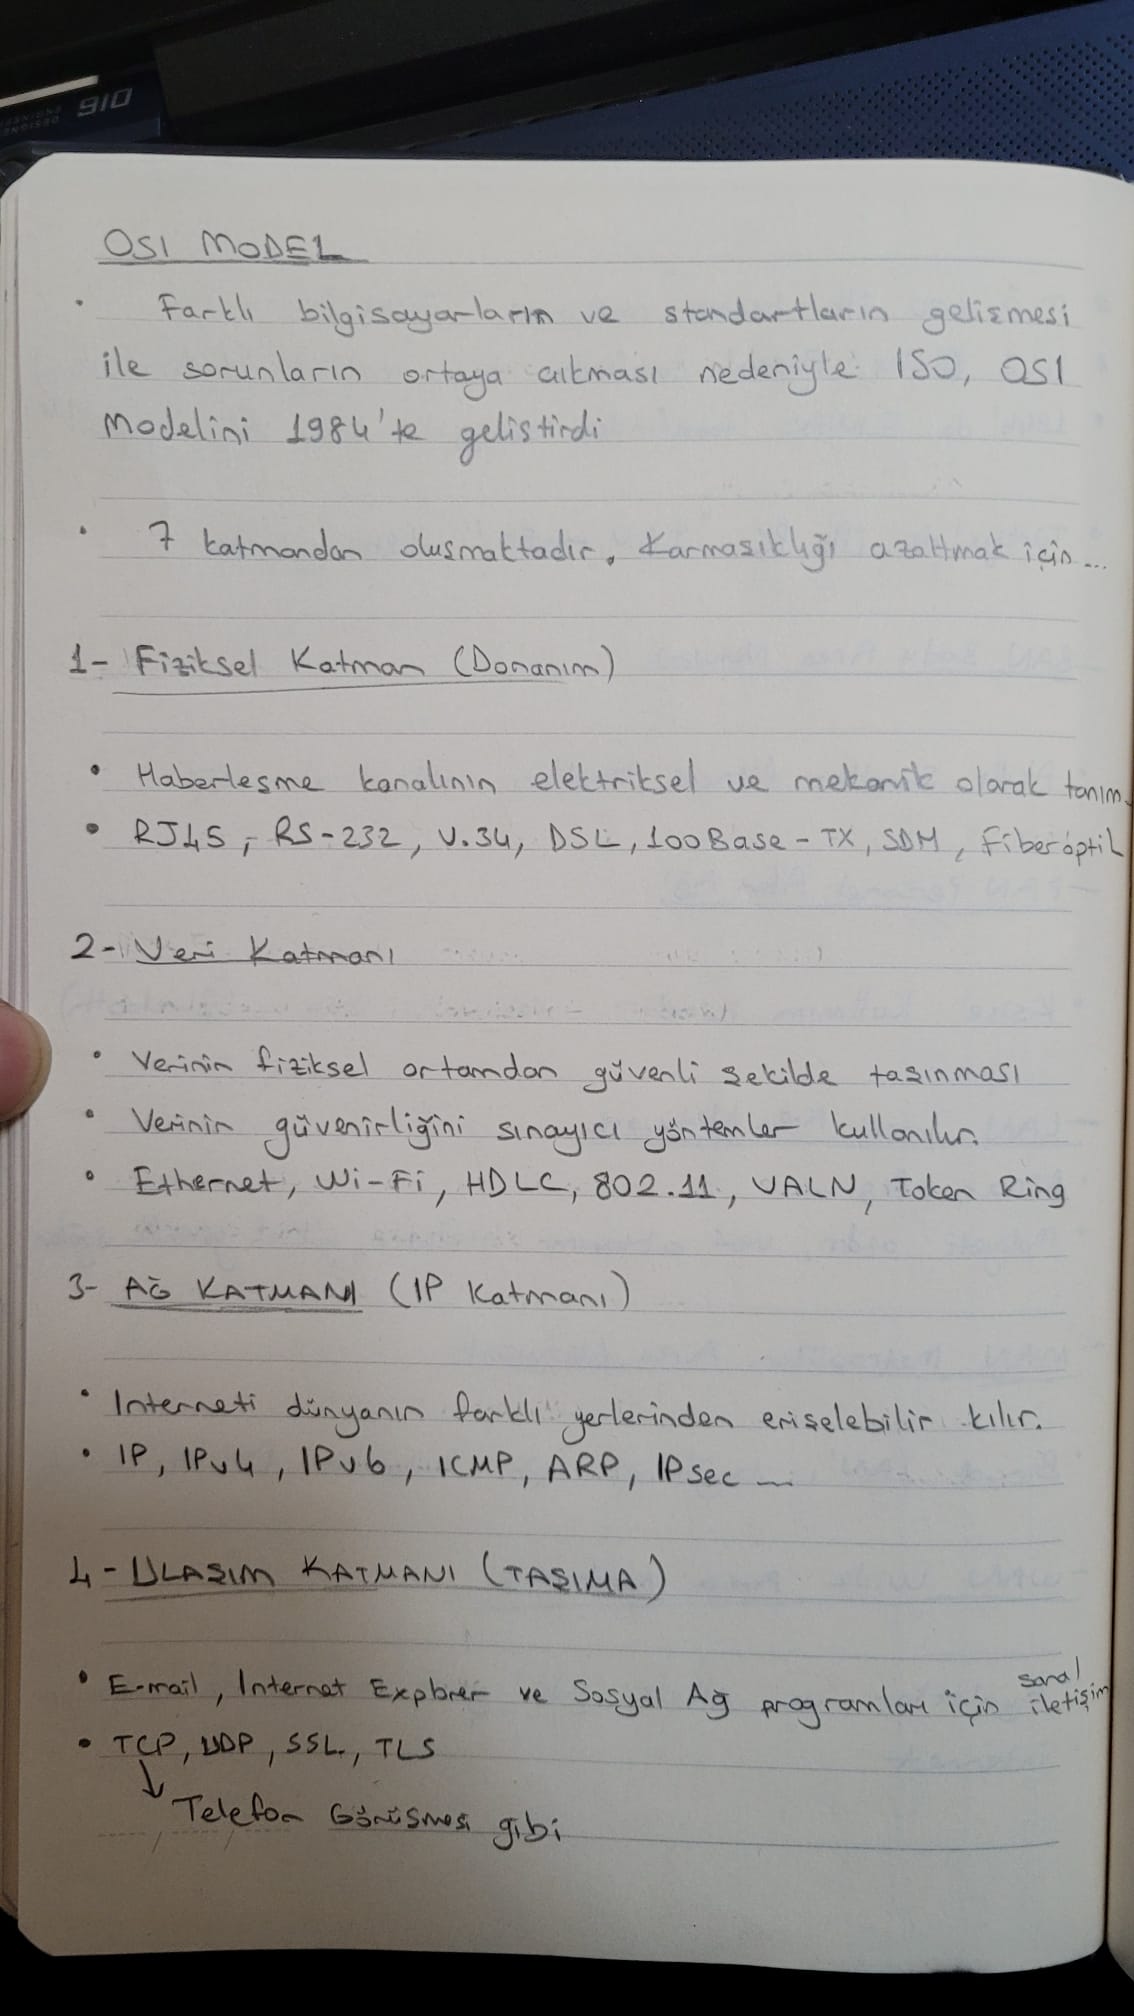 910
OSI MODEL
• Farklı bilgisayarların ve standartların gelişmesi
ile sorunların ortaya çıkması nedeniyle ISO, OSI
Modelini 1984'te geliştirdi
• 7 katmandan oluşmaktadır, Karmaşıklığı azaltmak için...
1- Fiziksel Katman (Donanım)
• Haberleşme kanalının elektriksel ve mekanik olarak tanım.
• RJ45, RS-232, V.34, DSL, 100Base-TX, SDM, Fiberoptik
2- Veri Katmanı
• Verinin fiziksel ortamdan güvenli şekilde taşınması
• Verinin güvenirliğini sınayıcı yöntemler kullanılır.
• Ethernet, Wi-Fi, HDLC, 802.11, VALN, Token Ring
3- AĞ KATMANI (IP Katmanı)
• Interneti dünyanın farklı yerlerinden erişelebilir kılır.
• IP, IPv4, IPv6, ICMP, ARP, IPsec ...
4- ULAŞIM KATMANI (TAŞIMA)
• E-mail, Internet Explorer ve Sosyal Ağ programları için sanal iletişim
• TCP, UDP, SSL, TLS
↓
Telefon Görüşmesi gibi